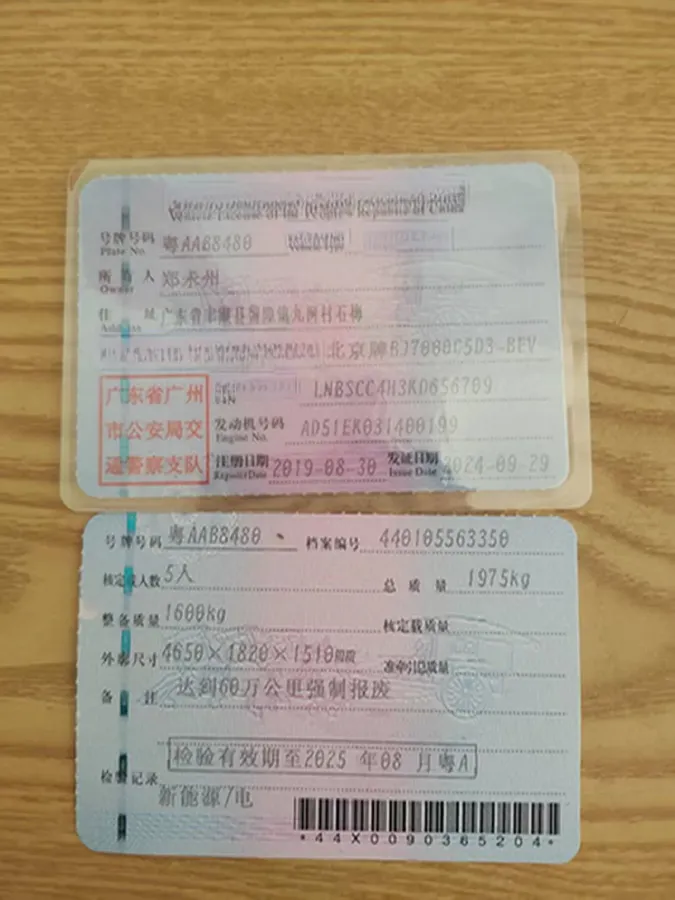 Vehicle License of the People's Republic of China
号牌号码 粤AAB8480
Plate No.
所有人 郑永州
Owner
住址 广东省丰顺县留隍镇九河村石梅
Address
北京牌BJ7000C5D3-BEV
广东省广州
市公安局交
通警察支队
VIN LNBSCC4H3KD656709
发动机号码 AD51EK031400199
Engine No.
注册日期 2019-08-30 发证日期 2024-09-29
Register Date Issue Date
号牌号码 粤AAB8480 档案编号 440105563350
核定载人数 5人 总质量 1975kg
整备质量 1600kg 核定载质量
外廓尺寸 4650×1820×1510 准牵引总质量
备注 达到60万公里强制报废
检验有效期至2025 年08 月粤A
检验记录
新能源/电
*44X0090365204*